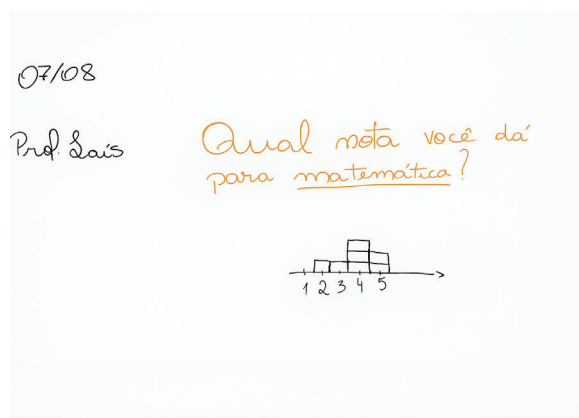 07/08
Prof. Laís
Qual nota você dá
para matemática?
1 2 3 4 5